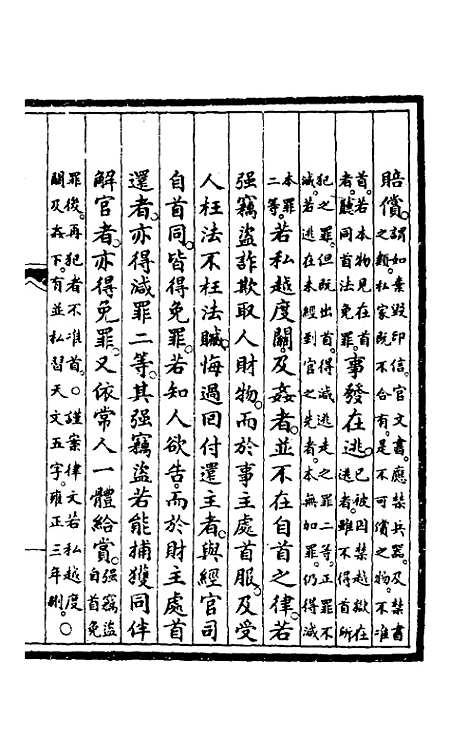 賠償謂如棄毀印信官文書應禁兵器及禁書之類私家既不合有是不可償之物不准
首若本物見在首者聽同首法免罪事發在逃已被囚禁越獄在逃者雖不得首所
犯之罪但既出首得減逃走之罪二等正罪不減若逃在未經到官之先者本無加罪仍得減
本罪二等若私越度關及姦者並不在自首之律若
強竊盜詐欺取人財物而於事主處首服及受
人枉法不枉法贓悔過回付還主者與經官司
自首同皆得免罪若知人欲告而於財主處首
還者亦得減罪二等其强竊盜若能捕獲同伴
解官者亦得免罪又依常人一體給賞强竊盜自首免
罪後再犯者不准首○謹案律文若私越度關及姦下有並私習天文五字雍正三年刪○